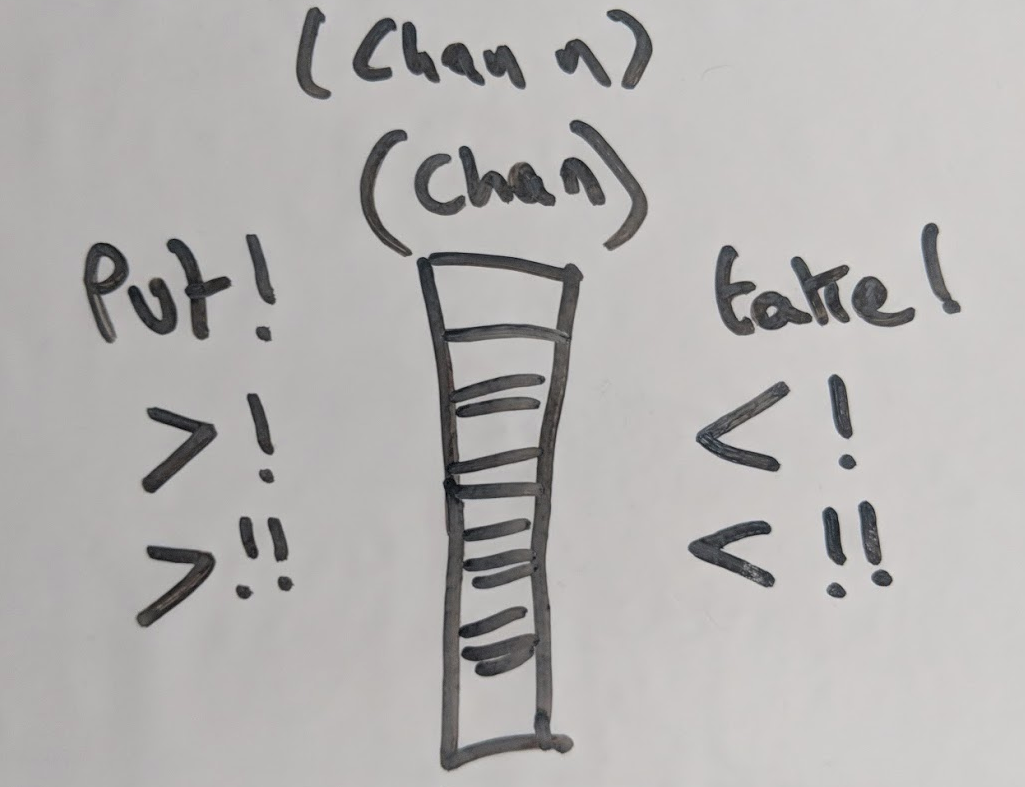 (Chan n)
(Chan)
Put!
take!
>!
<!
>!!
<!!